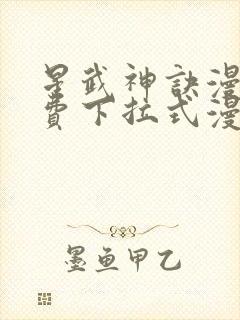 星武神訣漫
費下拉式漫
墨鱼甲乙